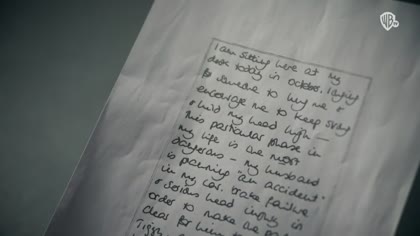 WB
I am sitting here at my
desk today in october, longing
for someone to hug me &
encourage me to keep strong
& hold my head high —
this particular phase in
my life is the most
dangerous — my husband
is planning "an accident"
in my car. brake failure
& serious head injury in
order to make the path
clear for him to
Tiggy